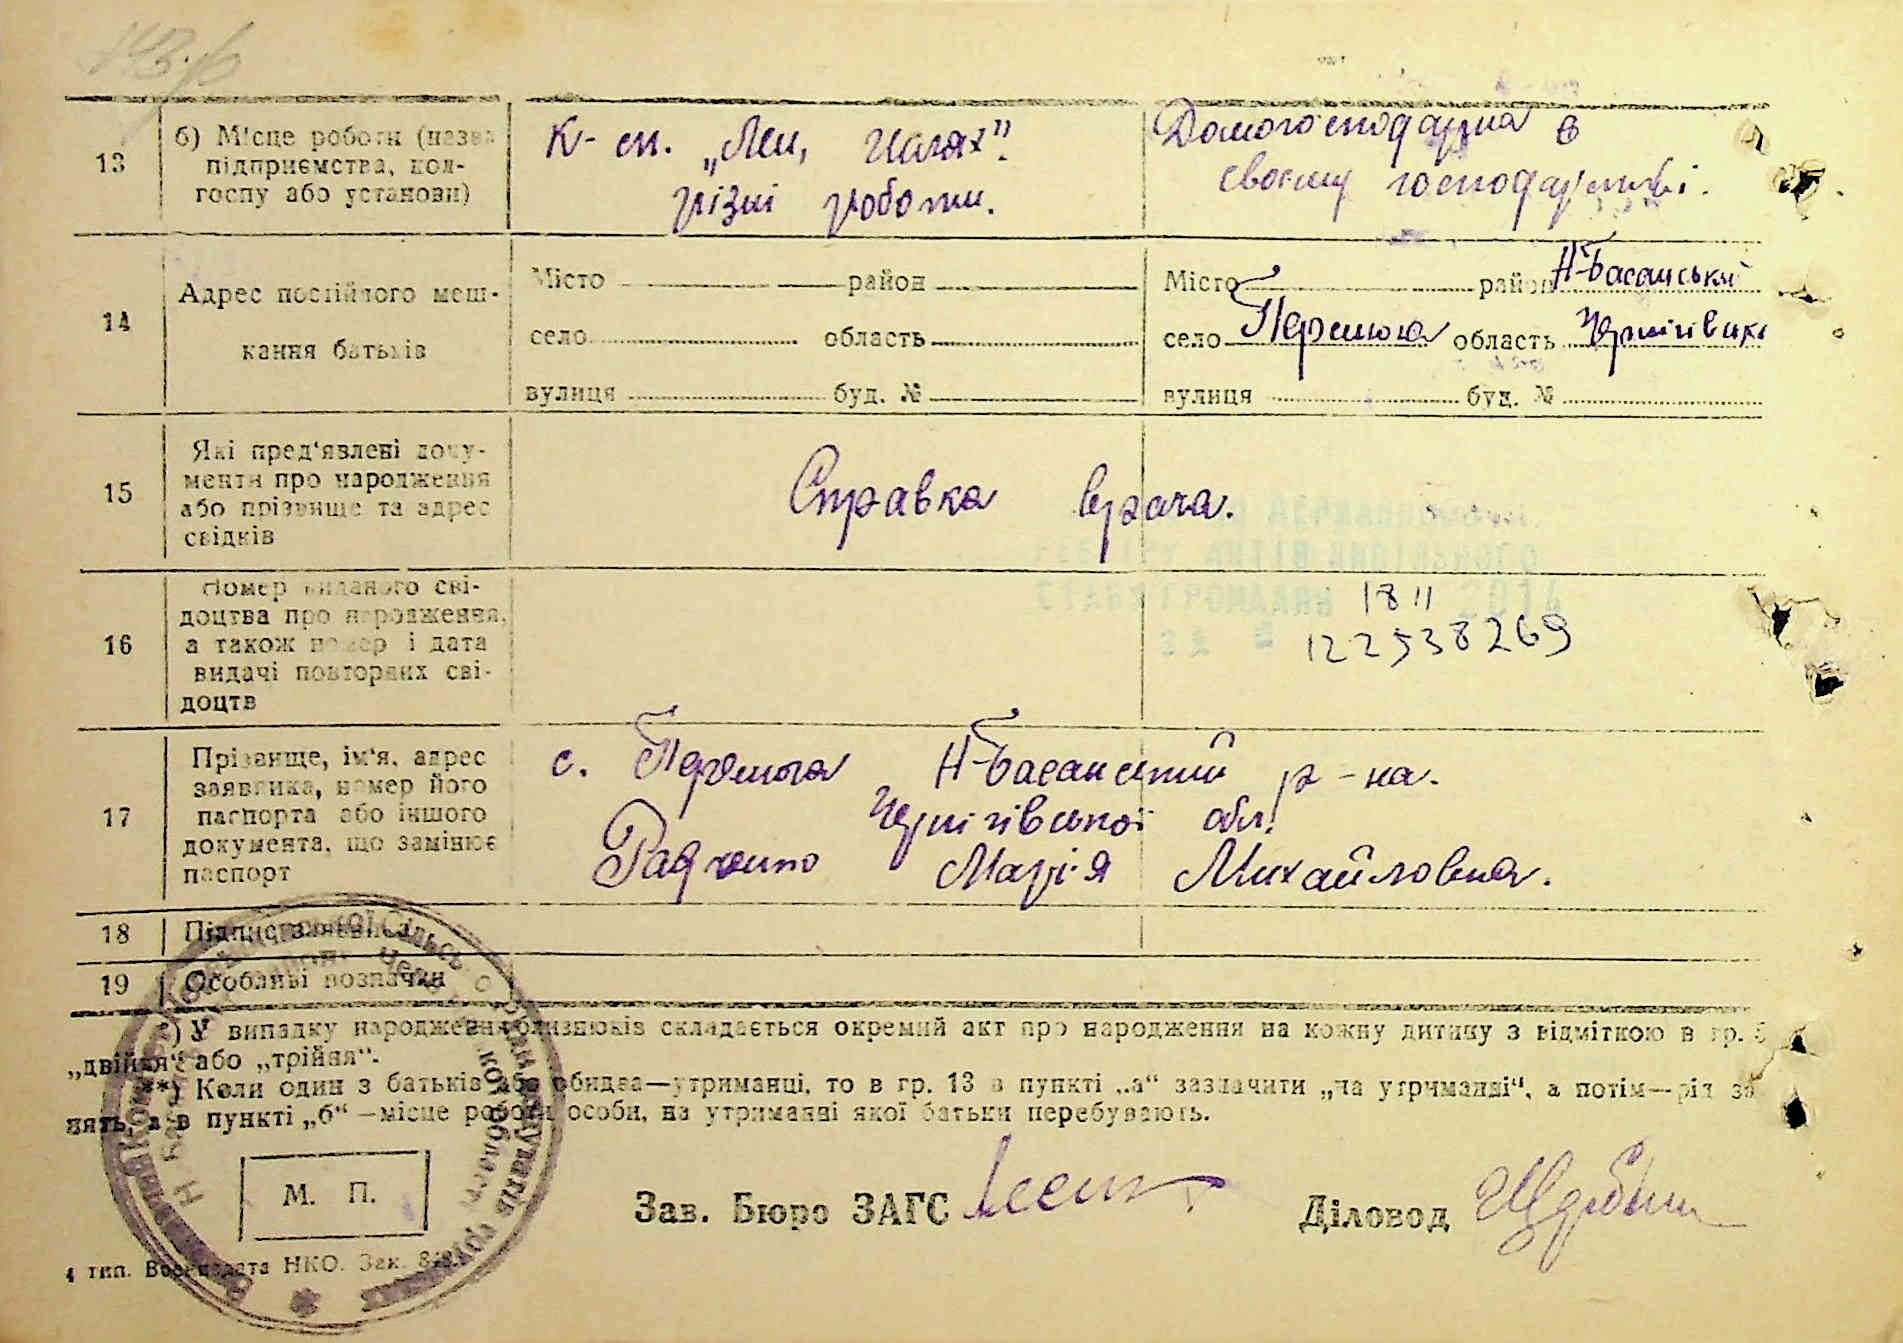 13
б) Місце роботи (назва
підприємства, кол-
госпу або установи)
К-сп. „Лен. шлях".
різні роботи.
Домогосподарка в
своєму господарстві.
14
Адрес постійного меш-
кання батьків
Місто район
село область
вулиця буд. №
Місто район Н-Басанський
село Перемога область Чернігівська
вулиця буд. №
15
Які пред'явлені доку-
менти про народження
або прізвище та адрес
свідків
Справка врача.
16
Номер виданого сві-
доцтва про народження,
а також номер і дата
видачі повторних сві-
доцтв
АКТІВ ЦИВІЛЬНОГО
СТАНУ ГРОМАДЯН 2014
18 11
122538269
17
Прізвище, ім'я, адрес
заявника, номер його
паспорта або іншого
документа, що замінює
паспорт
с. Перемога Н-Басанський р-на.
Чернігівської обл.
Радченко Марія Михайловна.
18
Підпис заявника
19
Особливі позначки
*) У випадку народження близнюків складається окремий акт про народження на кожну дитину з відміткою в гр. 5
„двійня" або „трійня".
**) Коли один з батьків або обидва—утриманці, то в гр. 13 в пункті „а" зазначити „на утриманні", а потім—рід за
нять, а в пункті „б" —місце роботи особи, на утриманні якої батьки перебувають.
М. П.
Зав. Бюро ЗАГС
Діловод
4 тип. Воениздата НКО. Зак.